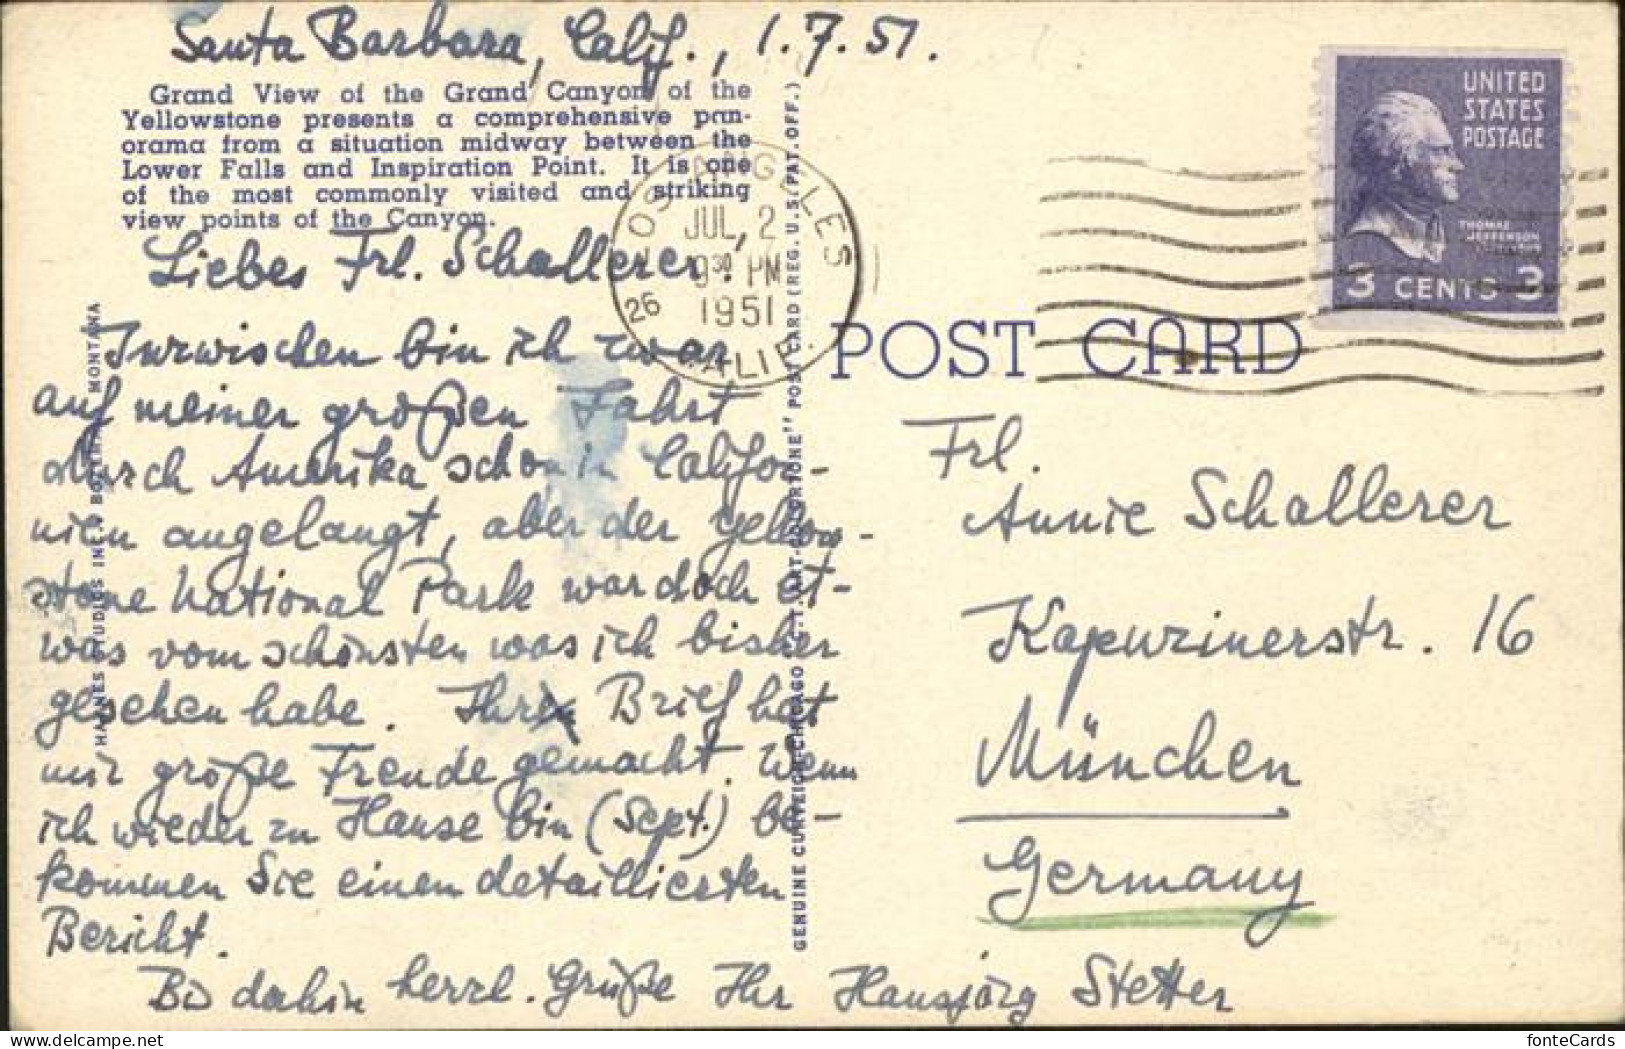 Santa Barbara, Calif., 1.7.51.
Grand View of the Grand Canyon of the
Yellowstone presents a comprehensive pan-
orama from a situation midway between the
Lower Falls and Inspiration Point. It is one
of the most commonly visited and striking
view points of the Canyon.
Liebes Frl. Schallerer!
Inzwischen bin ich zwar
auf meiner großen Fahrt
durch Amerika schon in Califor-
nien angelangt, aber der Yellow-
stone National Park war doch et-
was vom schönsten was ich bisher
gesehen habe. Ihr Brief hat
mir große Freude gemacht. Wenn
ich wieder zu Hause bin (Sept.) be-
kommen Sie einen detaillierten
Bericht.
Bis dahin herzl. Grüße Ihr Hansjörg Stetter
HAYNES STUDIOS INC., BOZEMAN, MONTANA
GENUINE CURTEICH-CHICAGO "C.T. ART-COLORTONE" POST CARD (REG. U.S. PAT. OFF.)
LOS ANGELES
JUL 2
930 PM
1951
26
CALIF.
UNITED
STATES
POSTAGE
THOMAS
JEFFERSON
3 CENTS 3
POST CARD
Frl.
Annie Schallerer
Kapuzinerstr. 16
München
Germany
fonteCards